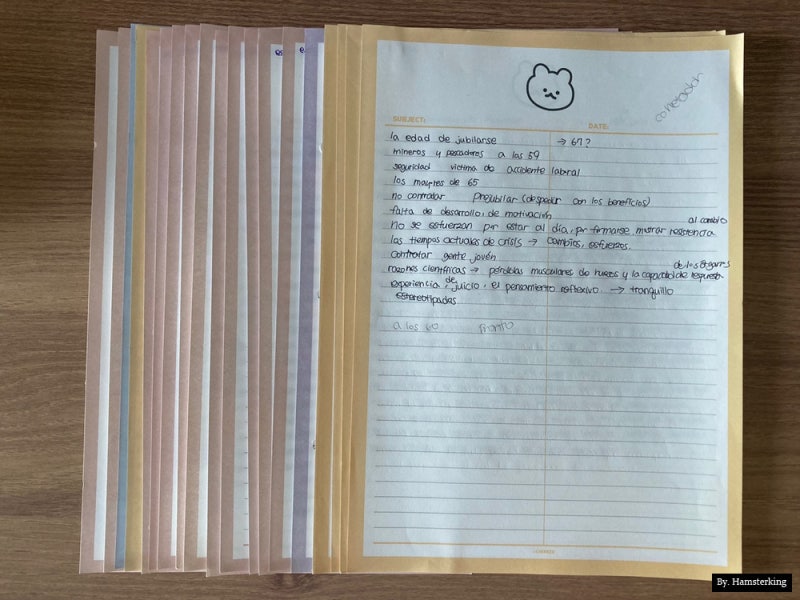 contestación
SUBJECT:
DATE:
la edad de jubilarse → 67?
mineros y pescadores a las 59
seguridad victima de accidente labral
los mayres de 65
no contratar prejubilar (despedir con los beneficios)
falta de desarrollo, de motivación
al cambio
no se esfuerzan por estar al día, por firmarse mostrar resistencia
los tiempos actuales de crisis → cambios, esfuerzos.
contratar gente jovén
de los órganos
razones científicas → pérdidas musculares de huesos y la capacidad de respuesta
experiencia, de juicio, el pensamiento reflexivo → tranquillo
estereotipadas
a los 60 pronto
By. Hamsterking